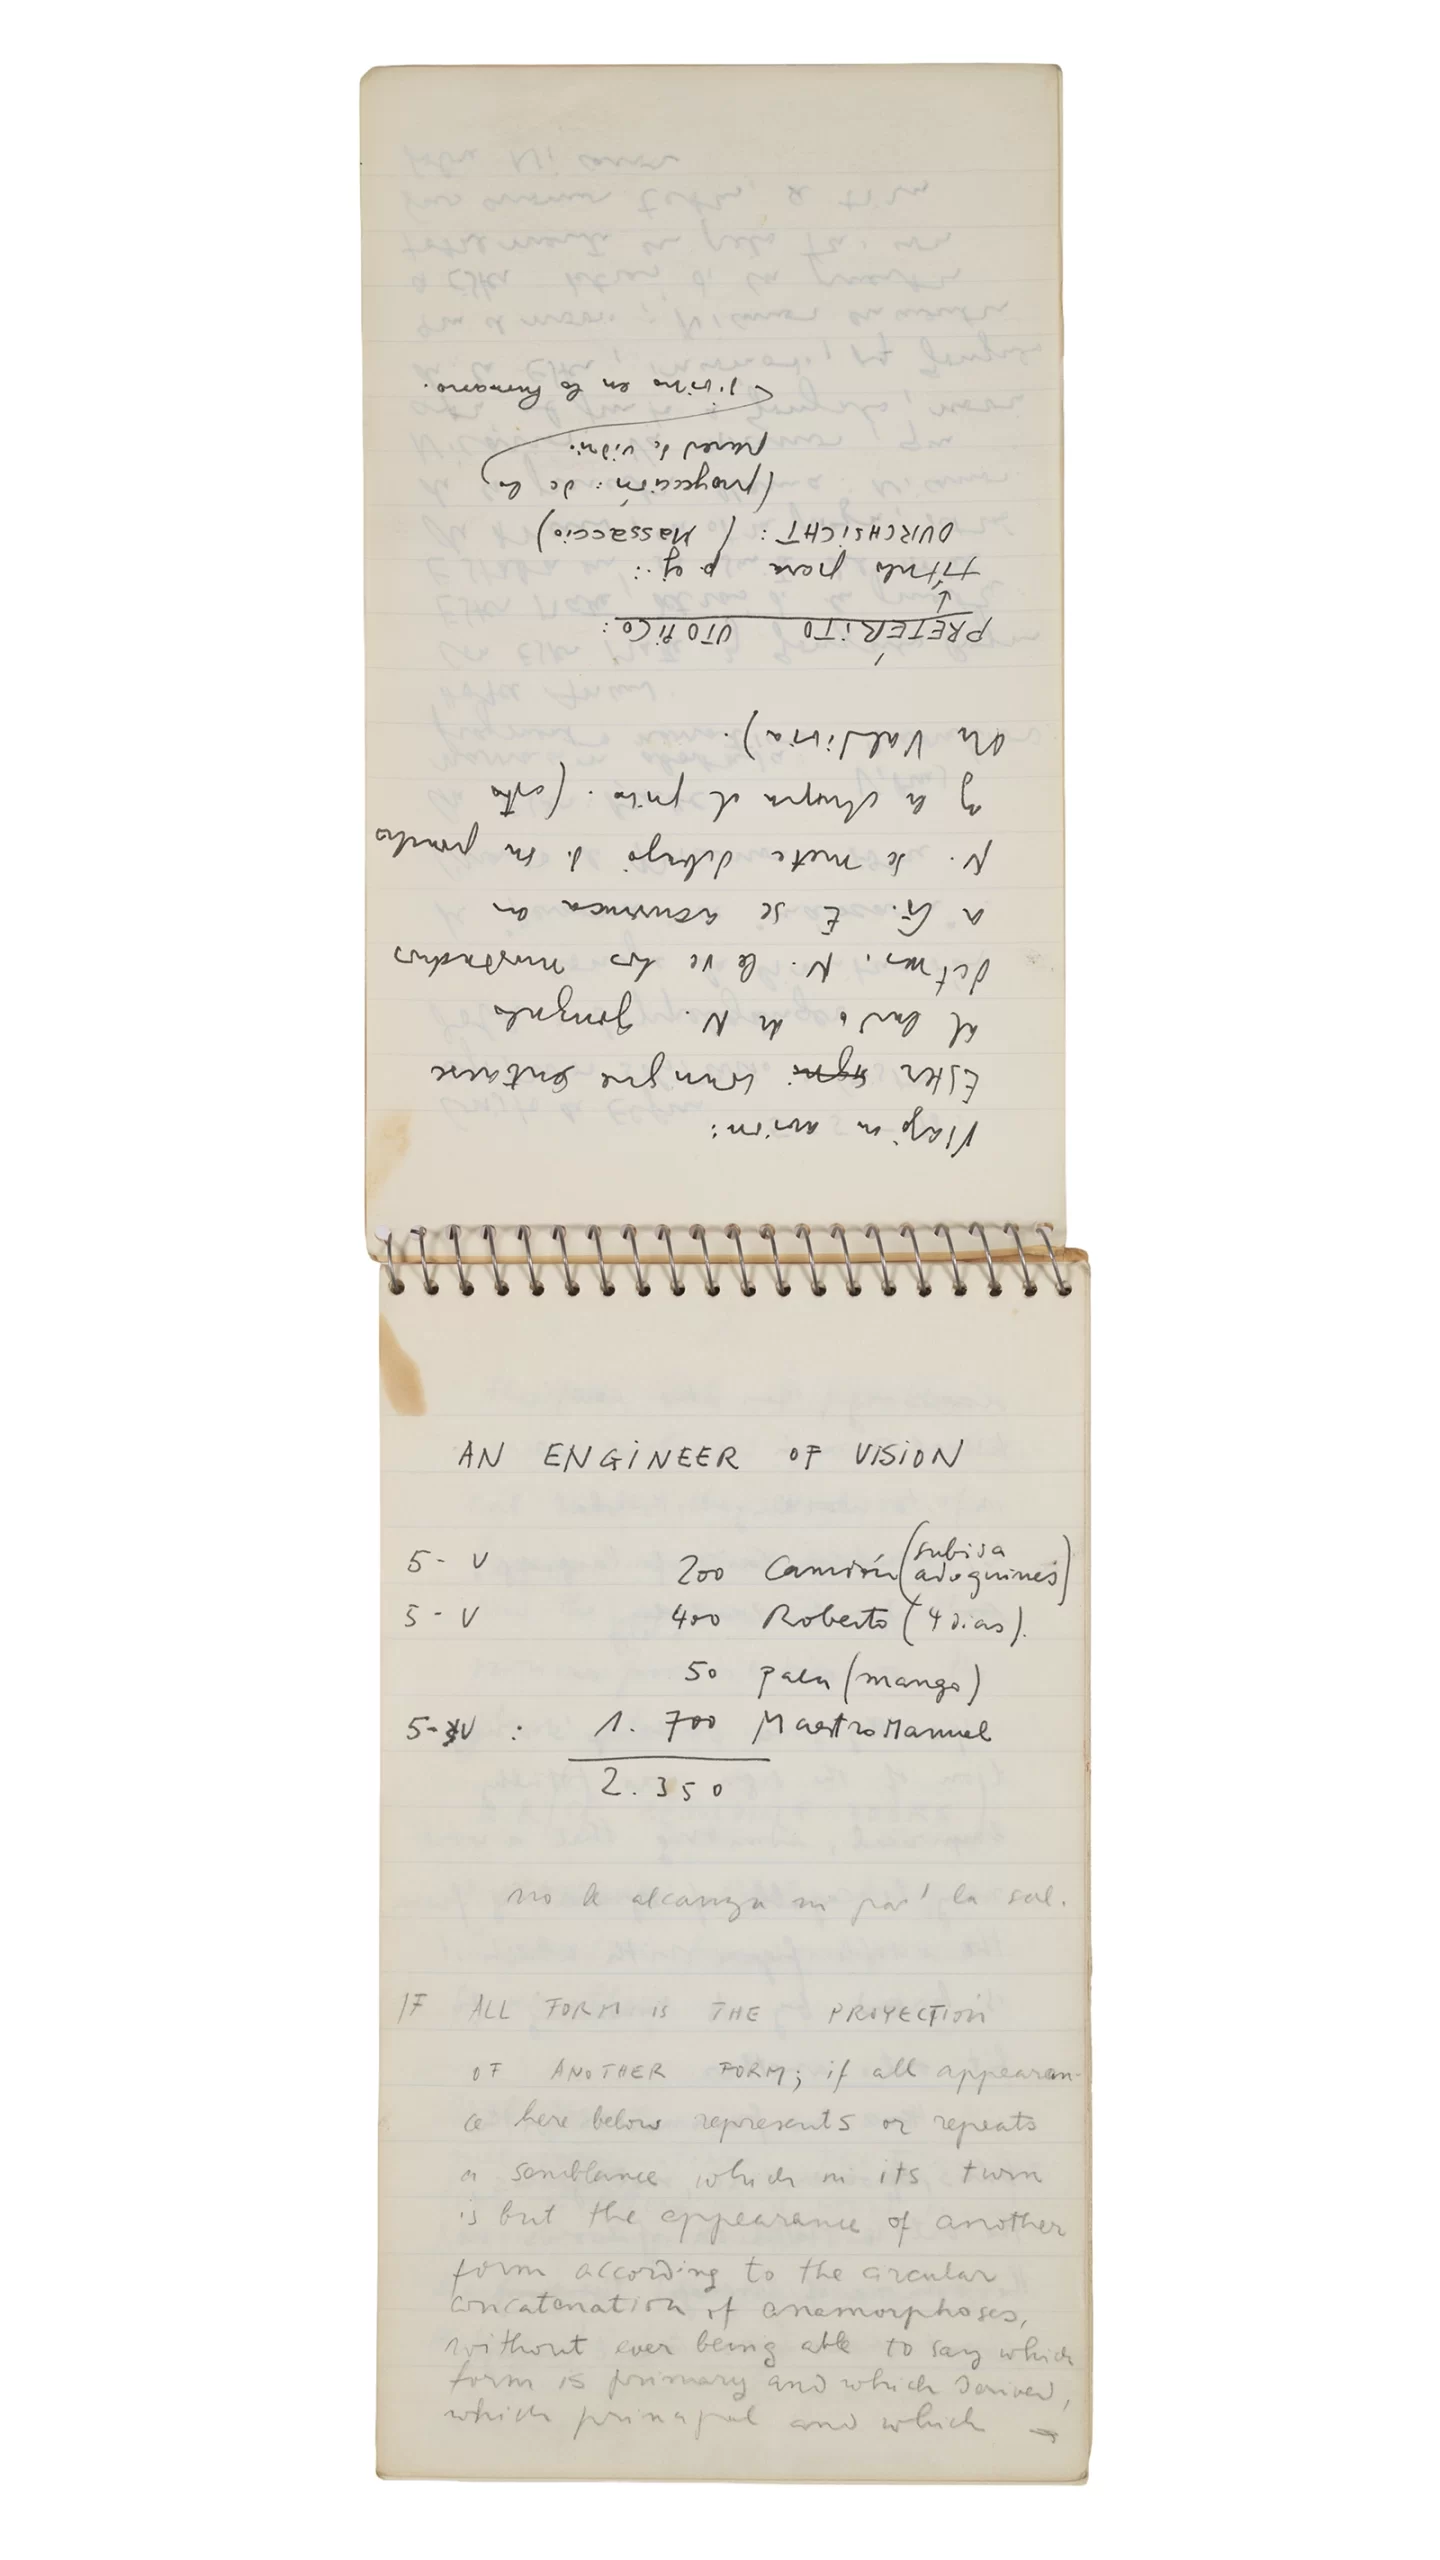 Viaje en avión:
Ester consigue sentarse
al lado de N. Gonzalo
detrás. N. le ve los
a G. E se acurruca en
N. se mete debajo de su poncho
y le chupa el pico. (esto
en Valdivia).
PRETÉRITO UTÓPICO:
título para p ej.:
DURCHSICHT: (Massaccio)
(proyección: de lo
pared de vidrio
divino en lo humano.
AN ENGINEER OF VISION
5- V 200 Camión (subida adoquines)
5- V 400 Roberto (4 dias).
50 pala (mango)
5- V : 1. 700 Maestro Manuel
2. 350
no le alcanza ni pa' la sal.
IF ALL FORM IS THE PROYECTION
OF ANOTHER FORM; if all appearan-
ce here below represents or repeats
a semblance which in its turn
is but the appearance of another
form according to the circular
concatenation of anamorphoses,
without ever being able to say which
form is primary and which derived,
which principal and which →